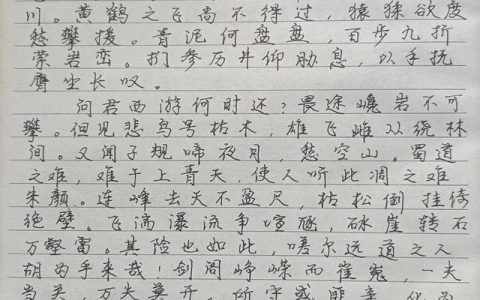 川。黄鹤之飞尚不得过，猿猱欲度
愁攀援。青泥何盘盘，百步九折
萦岩峦。扪参历井仰胁息，以手抚
膺坐长叹。
问君西游何时还？畏途巉岩不可
攀。但见悲鸟号枯木，雄飞雌从绕林
间。又闻子规啼夜月，愁空山。蜀道
之难，难于上青天，使人听此凋之难
朱颜。连峰去天不盈尺，枯松倒挂倚
绝壁。飞湍瀑流争喧豗，砯崖转石
万壑雷。其险也如此，嗟尔远道之人
胡为乎来哉！剑阁峥嵘而崔嵬，一夫
当关，万夫莫开。所守或匪亲，化为